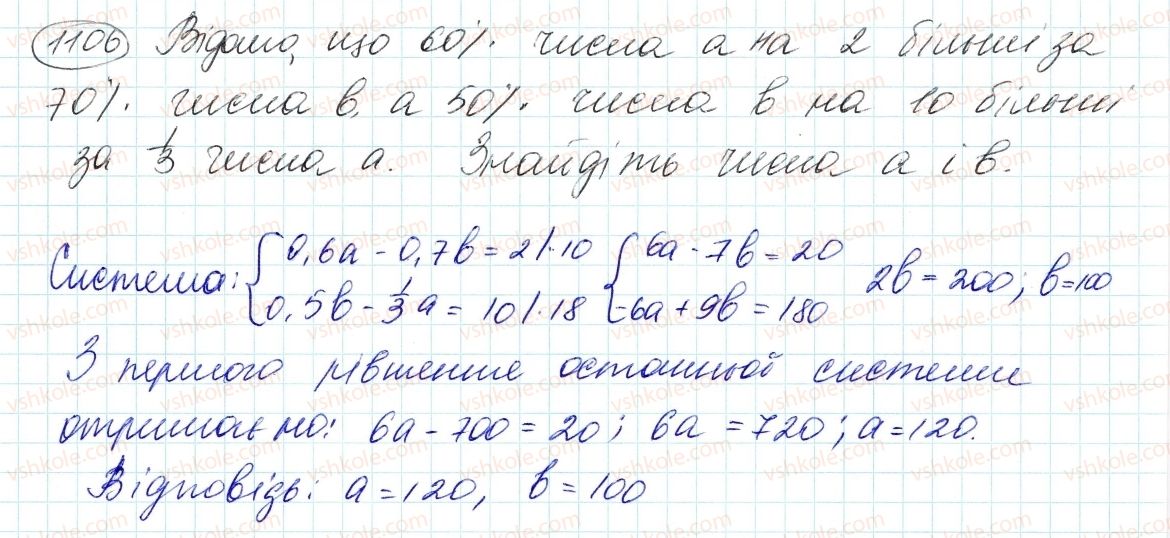 1106 Відомо, що 60% числа a на 2 більші за
70% числа b, а 50% числа b на 10 більші
за 1/3 числа a. Знайдіть числа a і b.
Система: { 0,6a - 0,7b = 2 |·10 { 6a - 7b = 20 2b = 200; b = 100
0,5b - 1/3a = 10 |·18 -6a + 9b = 180
З першого рівняння останньої системи
отримаємо: 6a - 700 = 20; 6a = 720; a = 120.
Відповідь: a = 120, b = 100